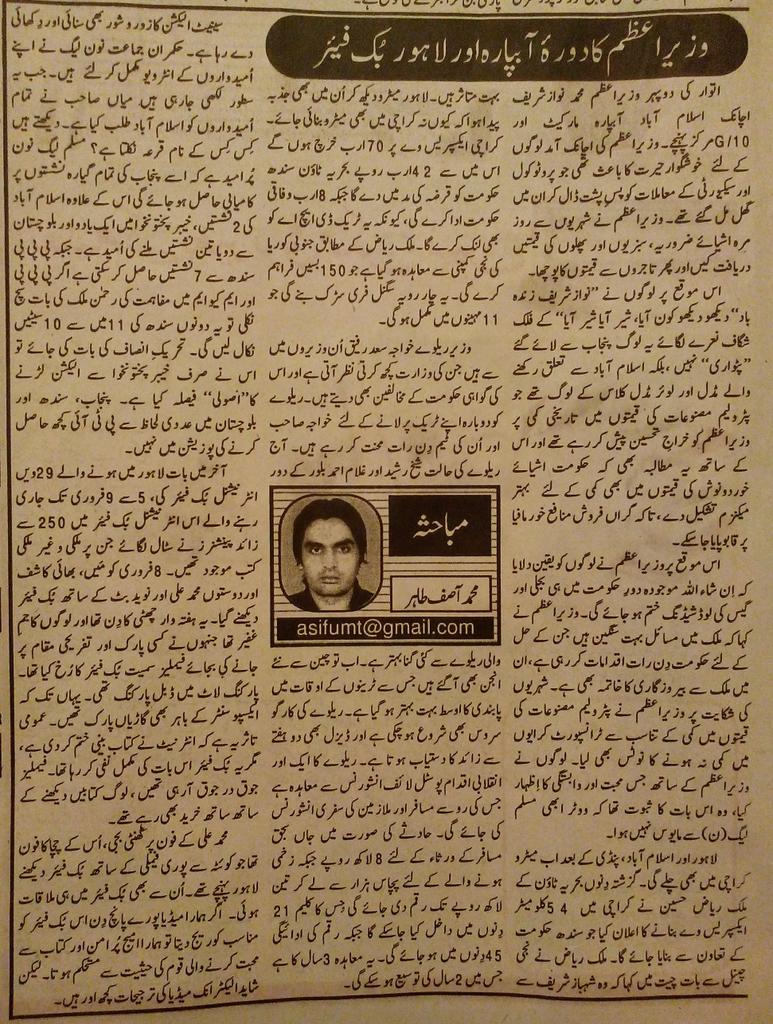 وزیراعظم کا دورۂ آبپارہ اور لاہور بُک فیئر
اتوار کی دوپہر وزیراعظم محمد نواز شریف
اچانک اسلام آباد آبپارہ مارکیٹ اور
G/10 مرکز پہنچے۔ وزیراعظم کی اچانک آمد لوگوں
کے لئے خوشگوار حیرت کا باعث تھی جو پروٹوکول
اور سیکیورٹی کے معاملات کو پس پشت ڈال کر ان میں
گھل مل گئے تھے۔ وزیراعظم نے شہریوں سے روز
مرہ اشیائے ضروریہ، سبزیوں اور پھلوں کی قیمتیں
دریافت کیں اور پھر تاجروں سے قیمتوں کا پوچھا۔
اس موقع پر لوگوں نے ”نواز شریف زندہ
باد“ ”دیکھو دیکھو کون آیا، شیر آیا شیر آیا“ کے فلک
شگاف نعرے لگائے یہ لوگ پنجاب سے لائے گئے
”پٹواری“ نہیں، بلکہ اسلام آباد سے تعلق رکھنے
والے مڈل اور لوئر مڈل کلاس کے لوگ تھے جو
پٹرولیم مصنوعات کی قیمتوں میں تاریخی کمی پر
وزیراعظم کو خراج تحسین پیش کر رہے تھے اور اس
کے ساتھ یہ مطالبہ بھی کہ حکومت اشیائے
خوردونوش کی قیمتوں میں بھی کمی کے لئے بہتر
میکنزم تشکیل دے، تاکہ گراں فروش منافع خور مافیا
پر قابو پایا جا سکے۔
اس موقع پر وزیراعظم نے لوگوں کو یقین دلایا
کہ اِن شاء اللہ موجودہ دورِ حکومت میں ہی بجلی اور
گیس کی لوڈشیڈنگ ختم ہو جائے گی۔ وزیراعظم نے
کہا کہ ملک میں مسائل بہت سنگین ہیں جن کے حل
کے لئے حکومت دِن رات اقدامات کر رہی ہے، ان
میں ملک سے بیروزگاری کا خاتمہ بھی ہے۔ شہریوں
کی شکایت پر وزیراعظم نے پٹرولیم مصنوعات کی
قیمتوں میں کمی کے تناسب سے ٹرانسپورٹ کرایوں
میں کمی نہ ہونے کا نوٹس بھی لیا۔ لوگوں نے
وزیراعظم کے ساتھ جس محبت اور وابستگی کا اظہار
کیا، وہ اس بات کا ثبوت تھا کہ ووٹر ابھی مسلم
لیگ (ن) سے مایوس نہیں ہوا۔
لاہور اور اسلام آباد، پنڈی کے بعد اب میٹرو
کراچی میں بھی چلے گی۔ گزشتہ دِنوں بحریہ ٹاؤن کے
ملک ریاض حسین نے کراچی میں 54 کلومیٹر
ایکسپریس وے بنانے کا اعلان کیا جو سندھ حکومت
کے تعاون سے بنایا جائے گا۔ ملک ریاض نے نجی
چینل سے بات چیت میں کہا کہ وہ شہباز شریف سے
بہت متاثر ہیں۔ لاہور میٹرو دیکھ کر اُن میں بھی جذبہ
پیدا ہوا کہ کیوں نہ کراچی میں بھی میٹرو بنائی جائے۔
کراچی ایکسپریس وے پر 70 ارب خرچ ہوں گے
اس میں سے 42 ارب روپے بحریہ ٹاؤن سندھ
حکومت کو قرضہ کی مد میں دے گا جبکہ 8 ارب وفاقی
حکومت ادا کرے گی، کیونکہ یہ ٹریک ڈی ایچ اے کو
بھی لنک کرے گا۔ ملک ریاض کے مطابق جنوبی کوریا
کی نجی کمپنی سے معاہدہ ہو گیا ہے جو 150 بسیں فراہم
کرے گی۔ یہ چار رویہ سگنل فری سڑک بنے گی جو
11 مہینوں میں مکمل ہو گی۔
وزیر ریلوے خواجہ سعد رفیق اُن وزیروں میں
سے ہیں جن کی وزارت کچھ کرتی نظر آتی ہے اور اس
کی گواہی حکومت کے مخالفین بھی دیتے ہیں۔ ریلوے
کو دوبارہ اپنے ٹریک پر لانے کے لئے خواجہ صاحب
اور اُن کی ٹیم دِن رات محنت کر رہے ہیں۔ آج
ریلوے کی حالت شیخ رشید اور غلام احمد بلور کے دور
مباحثہ
محمد آصف طاہر
asifumt@gmail.com
والی ریلوے سے کئی گنا بہتر ہے۔ اب تو چین سے نئے
انجن بھی آ گئے ہیں جس سے ٹرینوں کے اوقات میں
پابندی کا اوسط بہت بہتر ہو گیا ہے۔ ریلوے کی کارگو
سروس بھی شروع ہو چکی ہے اور ڈیزل بھی دو ہفتے
سے زائد کا دستیاب ہوتا ہے۔ ریلوے کا ایک اور
انقلابی اقدام پوسٹل لائف انشورنس سے معاہدہ ہے
جس کی رو سے مسافر اور ملازمین کی سفری انشورنس
کی جائے گی۔ حادثے کی صورت میں جاں بحق
مسافر کے ورثاء کے لئے 8 لاکھ روپے جبکہ زخمی
ہونے والے کے لئے پچاس ہزار سے لے کر تین
لاکھ روپے تک رقم دی جائے گی جس کا کلیم 21
دِنوں میں داخل کیا جا سکے گا جبکہ رقم کی ادائیگی
45 دِنوں میں ہو جائے گی۔ یہ معاہدہ 3 سال کا ہے
جس میں 2 سال کی توسیع ہو سکے گی۔
سینیٹ الیکشن کا زور و شور بھی سنائی اور دِکھائی
دے رہا ہے۔ حکمران جماعت نون لیگ نے اپنے
اُمیدواروں کے انٹرویو مکمل کر لئے ہیں۔ جب یہ
سطور لکھی جا رہی ہیں میاں صاحب نے تمام
اُمیدواروں کو اسلام آباد طلب کیا ہے۔ دیکھتے ہیں
کِس کِس کے نام قرعہ نکلتا ہے؟ مسلم لیگ نون
پُراُمید ہے کہ اسے پنجاب کی تمام گیارہ نشستوں پر
کامیابی حاصل ہو جائے گی اس کے علاوہ اسلام آباد
کی 2 نشستیں، خیبر پختونخوا میں ایک یا دو اور بلوچستان
سے دو یا تین نشستیں ملنے کی اُمید ہے۔ جبکہ پی پی پی
سندھ سے 7 نشستیں حاصل کر سکتی ہے اگر پی پی پی
اور ایم کیو ایم میں مفاہمت کی رحمٰن ملک کی بات سچ
نکلی تو یہ دونوں سندھ کی 11 میں سے 10 سیٹیں
نکال لیں گی۔ تحریک انصاف کی بات کی جائے تو
اس نے صرف خیبر پختونخوا سے الیکشن لڑنے
کا ”اصولی“ فیصلہ کیا ہے۔ پنجاب، سندھ اور
بلوچستان میں عددی لحاظ سے پی ٹی آئی کچھ حاصل
کرنے کی پوزیشن میں نہیں۔
آخر میں بات لاہور میں ہونے والے 29 ویں
انٹرنیشنل بُک فیئر کی، 5 سے 9 فروری تک جاری
رہنے والے اس انٹرنیشنل بُک فیئر میں 250 سے
زائد پبلشرز نے سٹال لگائے جن پر ملکی و غیر ملکی
کتب موجود تھیں۔ 8 فروری کو مَیں، بھائی کاشف
اور دوستوں محمد علی اور نوید بٹ کے ساتھ بُک فیئر
دیکھنے گیا۔ یہ ہفتہ وار چھٹی کا دِن تھا اور لوگوں کا جم
غفیر تھا جنہوں نے کسی پارک اور تفریحی مقام پر
جانے کی بجائے فیملیز سمیت بُک فیئر کا رُخ کیا تھا۔
پارکنگ لاٹ میں ڈبل پارکنگ تھی۔ یہاں تک کہ
ایکسپو سنٹر کے باہر بھی گاڑیاں پارک تھیں۔ عمومی
تاثر یہ ہے کہ انٹرنیٹ نے کتاب بینی ختم کر دی ہے،
مگر یہ بُک فیئر اس بات کی مکمل نفی کر رہا تھا۔ فیملیز
جوق در جوق آ رہی تھیں، لوگ کتابیں دیکھنے کے
ساتھ ساتھ خرید بھی رہے تھے۔
محمد علی کے فون پر گھنٹی بجی، اُس کے چچا کا فون
تھا جو کوئٹہ سے پوری فیملی کے ساتھ بُک فیئر دیکھنے
لاہور پہنچے تھے۔ اُن سے بھی بُک فیئر میں ہی ملاقات
ہوئی۔ اگر ہمارا میڈیا پورے پانچ دِن اس بُک فیئر کو
مناسب کوریج دیتا تو ہمارا امیج پُرامن اور کتاب سے
محبت کرنے والی قوم کی حیثیت سے مستحکم ہوتا۔ لیکن
شاید الیکٹرانک میڈیا کی ترجیحات کچھ اور ہیں۔